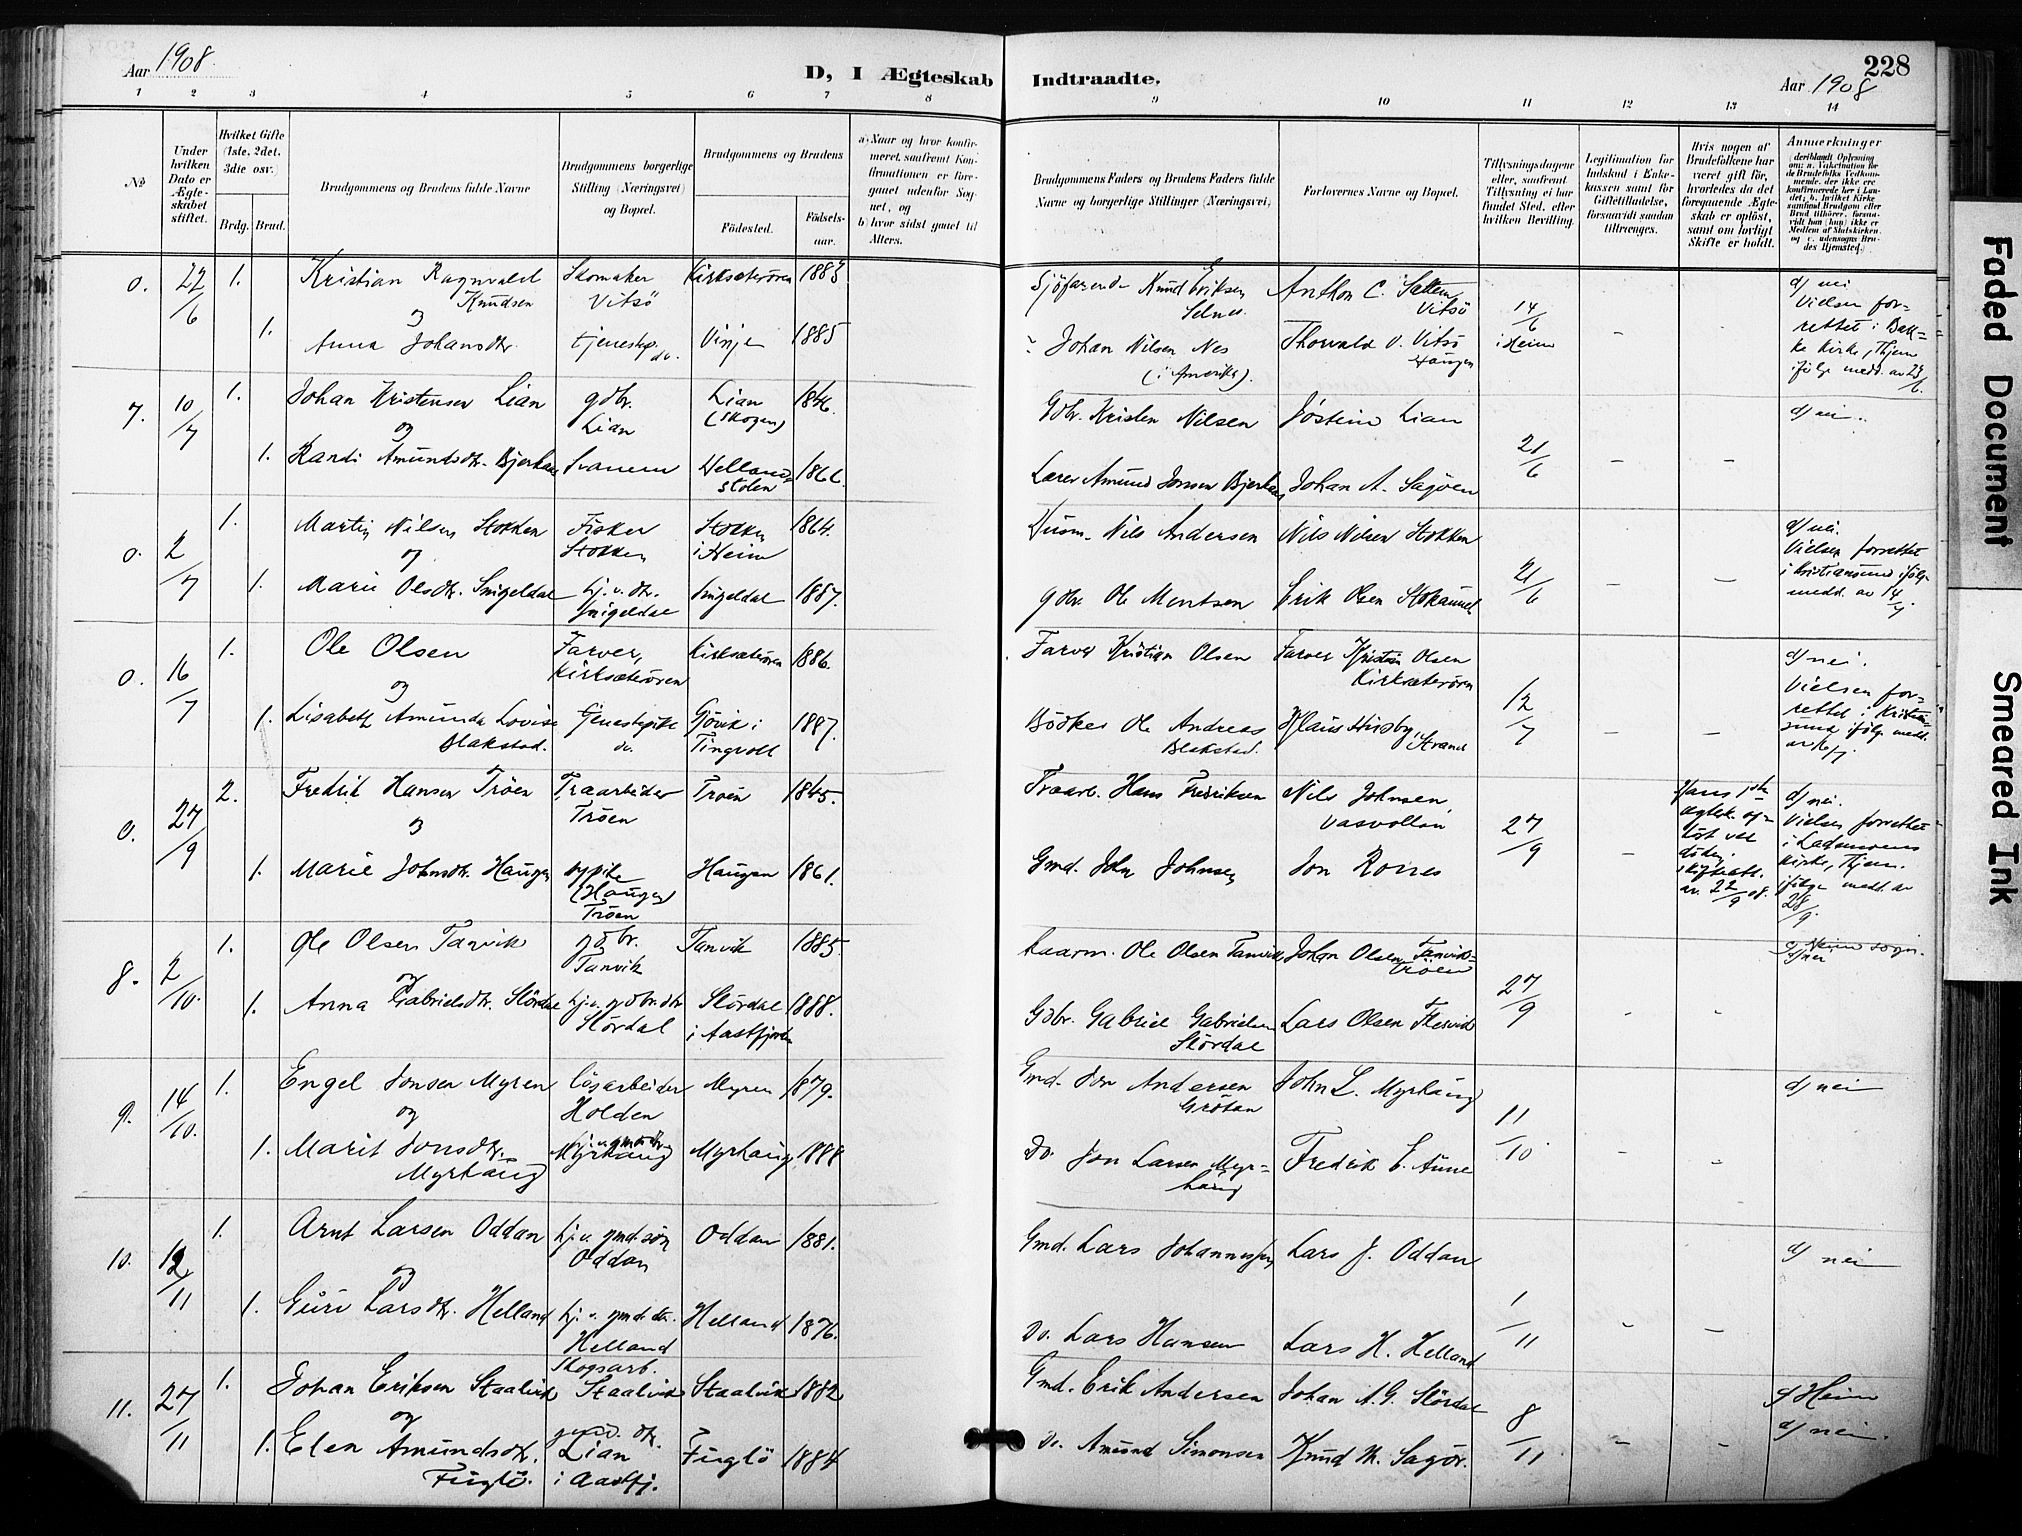 Aar 1908.
D, I Ægteskab Indtraadte.
228
Aar 1908
1 2 3 4 5 6 7 8 9 10 11 12 13 14
No
Under hvilken Dato er Ægteskabet stiftet.
Hvilket Gifte (1ste, 2det, 3die osv.)
Brdg. Brud.
Brudgommens og Brudens fulde Navne
Brudgommens borgerlige Stilling (Næringsvei) og Bopæl.
Brudgommens og Brudens
Fødested.
Fødselsaar.
a) Naar og hvor konfirmeret, saafremt Konfirmationen er foregaaet udenfor Sognet, og
b) hvor sidst gaaet til Alters.
Brudgommens Faders og Brudens Faders fulde Navne og borgerlige Stillinger (Næringsvei)
Forlovernes Navne og Bopæl.
Tillysningsdagene eller, saafremt Tillysning ei har fundet Sted, efter hvilken Bevilling.
Legitimation for Indskud i Enkekassen samt for Giftetilladelse, forsaavidt saadan tiltrænges.
Hvis nogen af Brudefolkene har været gift før, hvorledes da det foregaaende Ægteskab er opløst, samt om lovligt Skifte er holdt.
Anmerkninger
0. 22/6 1. Kristian Ragnvald Knudsen Skomaker Vitsø Kirksæterøren 1883 Sjøfarende Knud Eriksen Selnes. Anthon C. Sættem Vitsø 14/6 i Heim d) nei Vielsen forrettet i Bakke Kirke, Thjem ifølge medd. av 23/6.
og
1. Anna Johansdtr. tjenestep. do. Vinje 1885 Johan Nilsen Nes (i Amerika). Thorvald O. Vitsø Haugen
7. 10/7 1. Johan Kristensen Lian gdbr. Lian Lian (Skogen) 1846. Gdbr. Kristen Nilsen Jøstein Lian 21/6 – – d) nei.
og
1. Randi Amundsdtr. Bjerkan Svanem Hellandstolen 1866. Lærer Amund Jonsen Bjerkan Johan A. Sagøen
0. 2/7 1. Martin Nilsen Stokken Fisker Stokken Stokken i Heim 1864. Husm. Nils Andersen Nils Nilsen Stokken 21/6 – – d) nei. Vielsen forrettet i Kristiansund ifølge medd. av 14/7.
og
1. Marie Olsdtr. Snigeldal hj. v. dtr. Snigeldal Snigeldal 1887. gdbr. Ole Mentsen Erik Olsen
0. 16/7 1. Ole Olsen Farver, Kirksæterøren Kirksæterøren 1886. Farver Kristian Olsen Farver Kristian Olsen Kirksæterøren 12/7 – – d) nei. Vielsen forrettet i Kristiansund ifølge medd. av 16/7.
og
1. Lisabeth Amunda Lovise Blakstad. tjenestepike do. Gjøvik i Tingvoll 1887. Bødker Ole Andreas Blakstad. Klaus Husby, Strand
0. 27/9 2. Fredrik Hansen Trøen Træarbeider Trøen Trøen 1845. Træarb. Hans Fredriksen Nils Johnsen Vasvollan 27/9 – Hans 1ste ægtesk. opløst ved døden. skifteatt. av 22/9 08. d) nei. Vielsen forrettet i Lademoens Kirke, Thjem. ifølge medd. av 28/9.
og
1. Marie Johnsdtr. Haugen (Haugen) Trøen Haugen 1861. Gmd. John Johnsen Jon Rones
8. 2/10. 1. Ole Olsen Tanvik gdbr. Tanvik Tanvik 1885. Kaarm. Ole Olsen Tanvik Johan Olsen Tanvik-Trøen 27/9 - - d) nei
og
1. Anna Gabrielsdtr. Slørdal hj. v. gdbr. dtr. Slørdal Slørdal i Aastfjorden 1888. Gdbr. Gabriel Gabrielsen Slørdal Lars Olsen Tlesvik
9. 14/10. 1. Engel Jonsen Myren løsarbeider Holden Myren 1879. Gmd. Jon Andersen Grøtan John L. Myrhaug 11/10 - - d) nei
og
1. Marit Jonsdtr. Myrhaug hj. v. gmd. dtr. Myrhaug Myrhaug 1888 Do. Jon Larsen Myrhaug Fredrik E. Aune
10. 12/11 1. Arnt Larsen Oddan hj. v. gmd. søn Oddan Oddan 1881. Gmd. Lars Johannessen Lars J. Oddan 1/11 - – d) nei
og
1. Guri Larsdtr. Helland hj. v. gmd. dtr. Helland Helland 1876. Do. Lars Hansen Lars H. Helland
11. 27/11 1. Johan Eriksen Staalvik Skogsarb. Staalvik Staalvik 1882 Gmd. Erik Andersen Johan A. G. Slørdal 8/11 - - Heim d) nei.
og
1. Elen Amundsdtr. Fuglø. gmd. dtr. Lian i Aastfj. Fuglø 1884 Do. Amund Simonsen Knud M. Sagør.
Faded Document
Smeared Ink